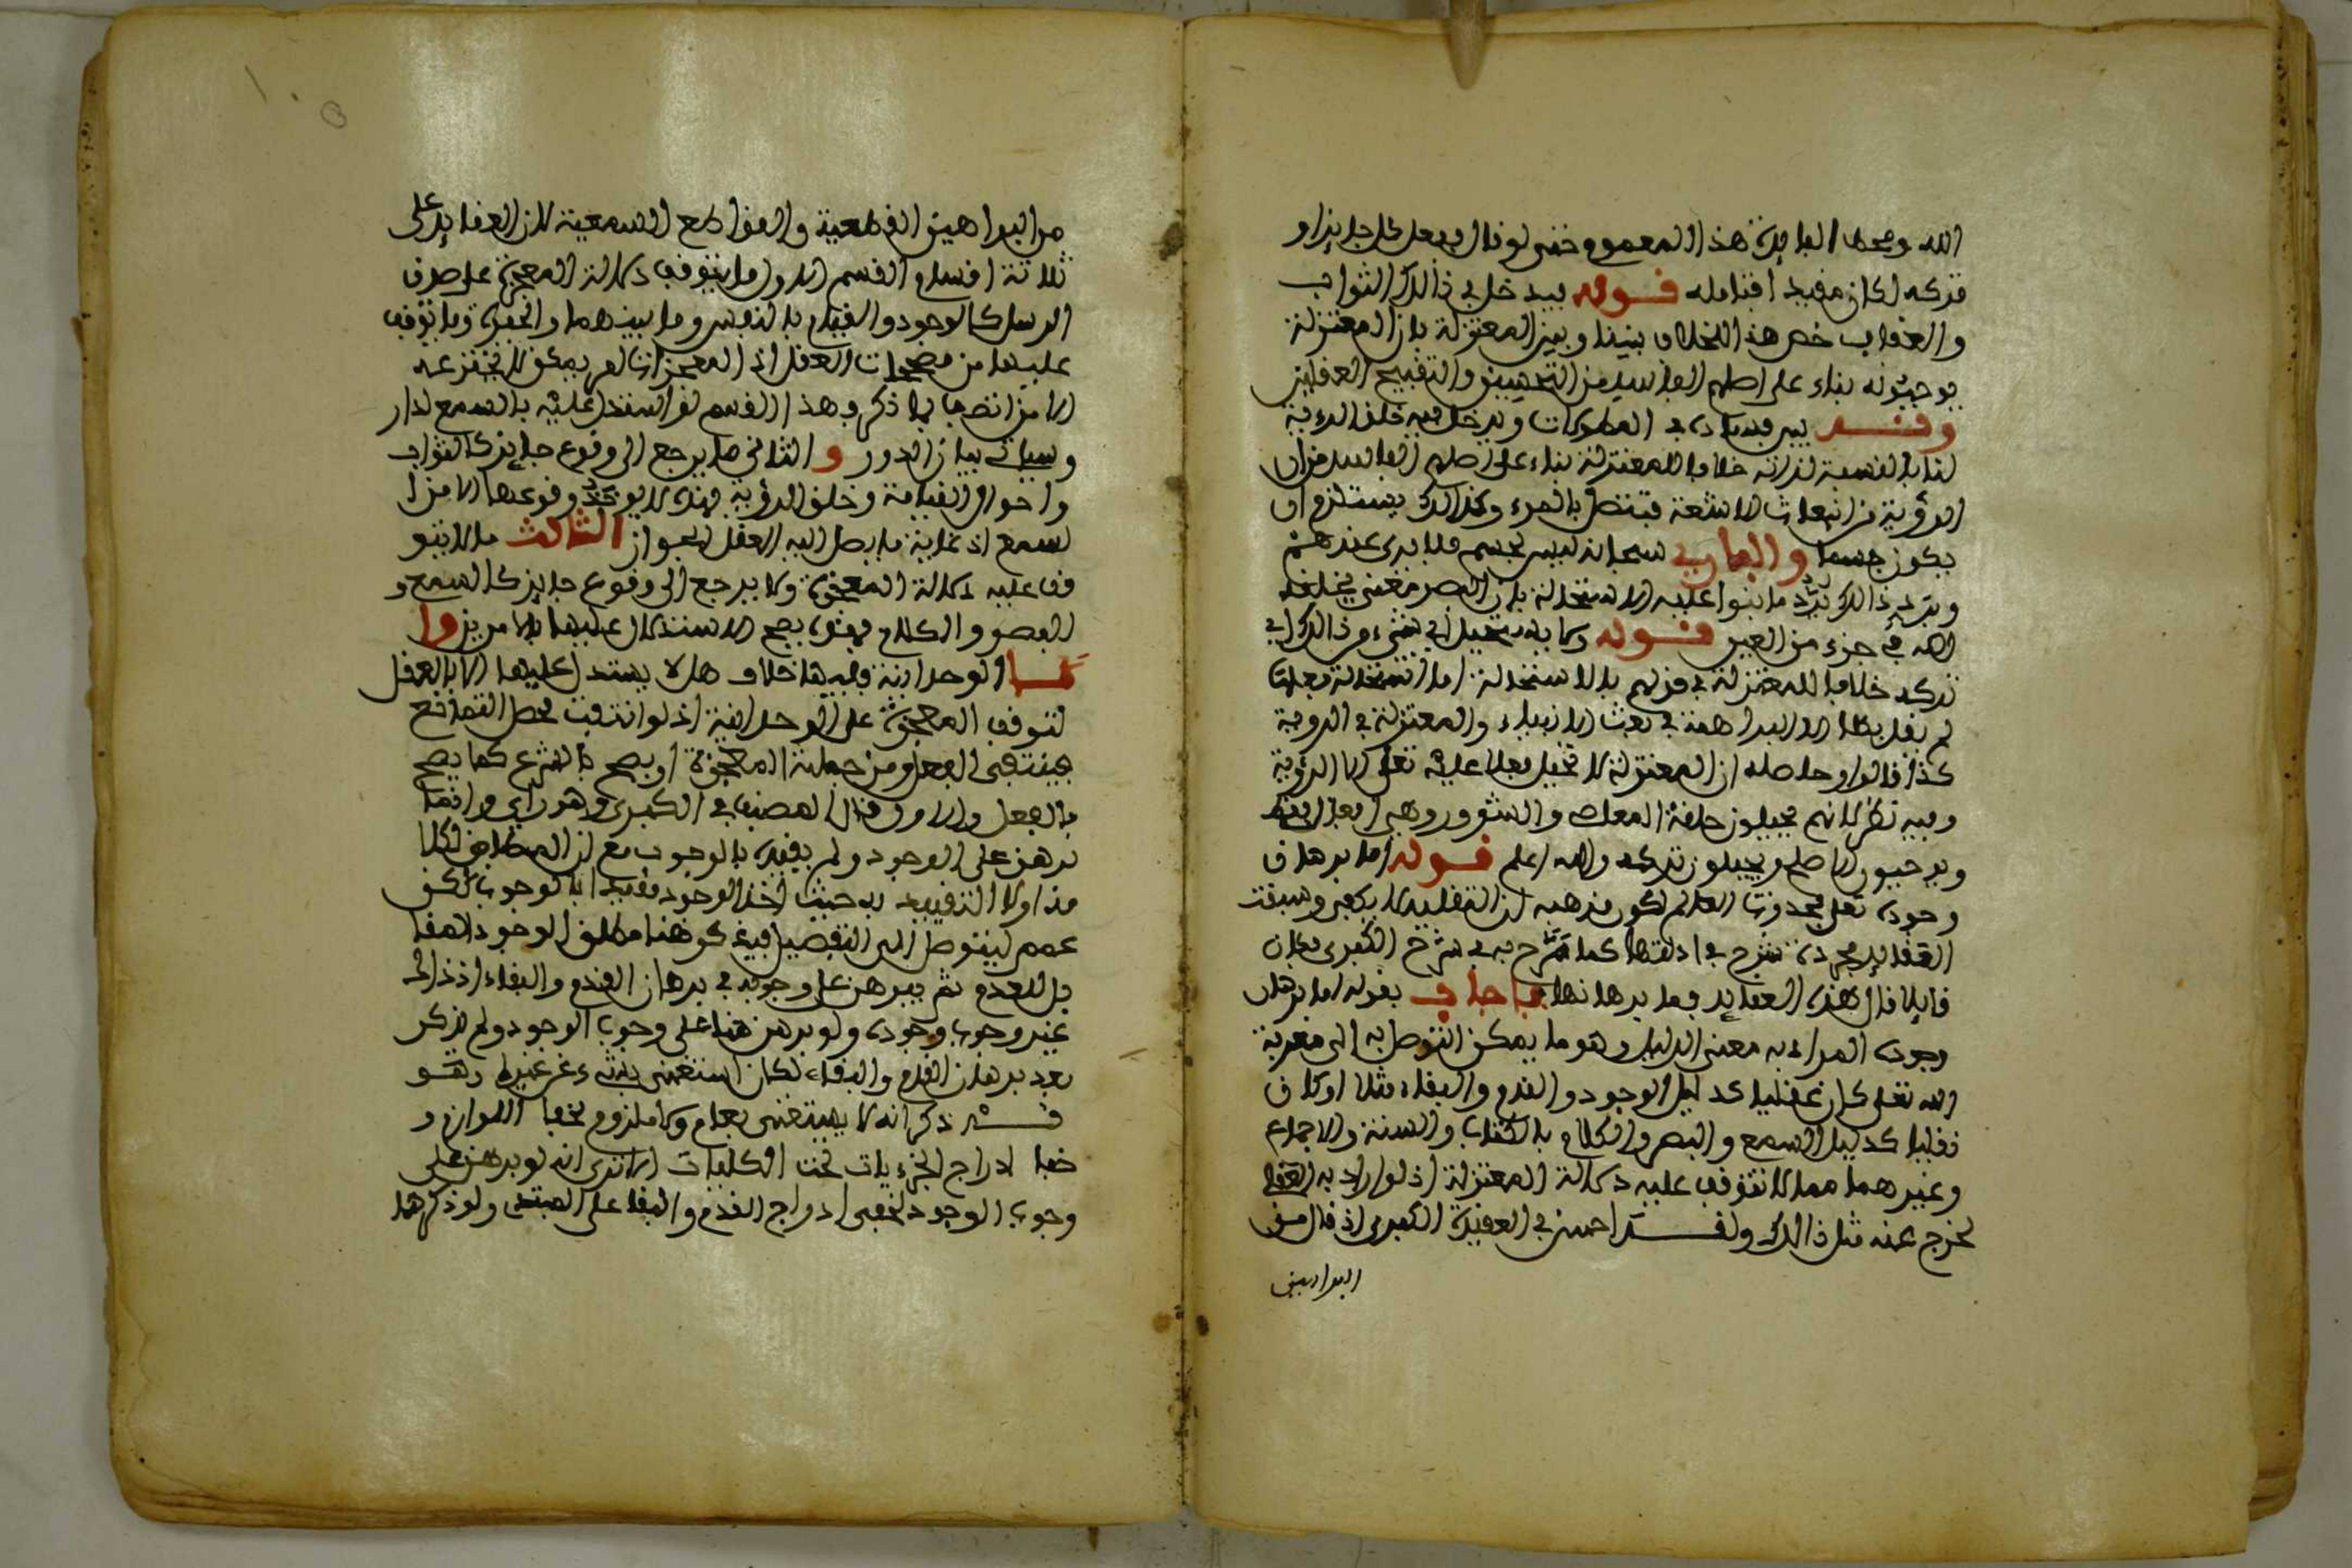 الله ومحط الفايدة هذا المعموم خفى لو قال فعل كل جايز او
تركه لكان مفيدا فتامله قوله فيدخل في ذالك الثواب
والعقاب خص هذا الخلاف بيننا وبين المعتزلة بان المعتزلة
يوجبونه بناء على اصلهم الفاسد من التحسين والتقبيح العقليين
وقد بين فساده في المطولات ويدخل فيه خلق الرءية
لنا بالنسبة لذاته خلافا للمعتزلة بناء على اصلهم الفاسد من ان
الرؤية من انبعاث الاشعة فتتصل بالمرء وكذالك يستلزم ان
يكون جسما والباري سبحانه ليس بجسم فلا يرى عندهم
ذالك برد ما بنوا عليه الاستحالة بان البصر معنى يخلقه
الله في جزء من العين قوله وما يستحيل اي شيء من ذالك اي
تركه خلافا للمعتزلة في قولهم بالاستحالة اما استحالة فعلها
لم يقل بها الا البراهمة في بعث الانبياء والمعتزلة في الروية
كذا قالوا وحاصله ان المعتزلة لا تحيل فعلا عليه تعلى الا الرؤية
وفيه نظر لانهم يحيلون خلقه المعاصي والشرور وهي افعال
ويوجبون الاصلح ويحيلون تركه والله اعلم قوله اما برهان
وجوده تعلى فحدوث العالم لكون مذهبه ان التقليد لا يكفي وسبقت
العقايد مجردة شرح في ادلتها كما صرح به في شرح الكبرى فكان
قايلا قال هذه العقايد فما برهانها فاجاب بقوله اما برهان
وجوده المراد به معنى الدليل وهو ما يمكن التوصل به الى معرفة
الله تعلى كان عقليا كدليل الوجود والقدم والبقاء مثلا او كان
نقليا كدليل السمع والبصر والكلام بالكتاب والسنة والاجماع
وغيرهما مما لا تتوقف عليه دلالة المعتزلة اذ لو اراد به العقلي
لخرج عنه مثل ذالك ولقد احسن في العقيدة الكبرى اذ قال من
البراهين
من البراهين القطعية والقواطع السمعية لان العقايد على
ثلاثة اقسام القسم الاول ما يتوقف دلالة المعجزة على صدق
الرسل كالوجود والقيام بالنفس وما بينهما والقدرة وما توقف
عليها من مصححات الفعل اذ المعجزات لم يمكن لا يخترعه
الا من اتصف بما ذكر وهذا القسم لو استدل عليه بالسمع لدار
وسياتي بيان الدور والثاني ما يرجع الى وقوع جايز كالثواب
واحوال القيامة وخلق الرؤية فهذه لا يوخذ وقوعها الا من ا
لسمع اذ غاية ما يصل اليه العقل الجواز الثالث ما لا يتو
قف عليه دلالة المعجزة ولا يرجع الى وقوع جايز كالسمع و
البصر والكلام فهذه يصح الاستدلال عليها بالامرين وا
مـا الوحدانية ففيها خلاف هل لا يستدل عليها الا بالعقل
لتوقف المعجزة على الوحدانية اذ لو انتفت لحصل التمانع
فينتفي الفعل ومن جملته المعجزة او يصح بالشرع كما يصح
بالعقل والاول قال المصنف في الكبرى وهو رأي وانما
برهن على الوجود ولم يقيده بالوجوب مع ان المطابق لكلا
مه اولا التقييد به حيث اخذ الوجود مقيدا بالوجوب لكن
عمم ليتوصل الى التفصيل فيذكر هنا مطلق الوجود المقا
بل للعدم ثم يبرهن على وجوبه في برهان القدم والبقاء اذ ذاك
غير وجوب وجوده ولو برهن هنا على وجوب الوجود ولم يذكر
بعد برهان القدم والبقاء لكان استغنى بشيء عن غيره وهو
قد ذكر انه لا يستغنى بعام ولا ملزوم لخفا اللوازم و
خفا ادراج الجزءيات تحت الكليات الا ترى انه لو برهن على
وجوب الوجود لخفي ادراج القدم والبقا على المبتدي ولو ذكرهما